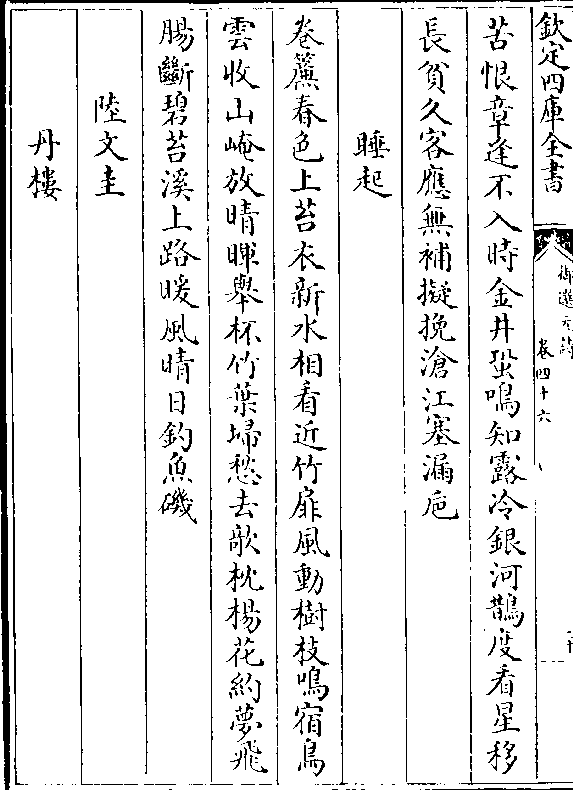 欽定四庫全書
御選元詩
卷四十六
苦恨章逢不入時金井蛩鳴知露冷銀河鵲度看星移
長貧久客應無補擬挽滄江塞漏巵
睡起
卷簾春色上苔衣新水相看近竹扉風動樹枝鳴宿鳥
雲收山崦放晴暉舉杯竹葉埽愁去欹枕楊花約夢飛
腸斷碧苕溪上路暖風晴日釣魚磯
陸文圭
丹樓